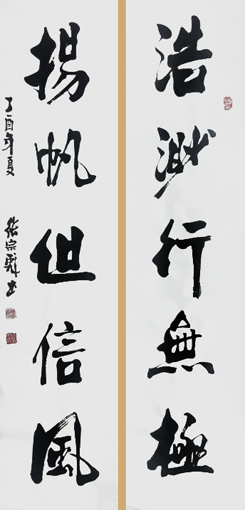 浩渺行無極
揚帆但信風
丁酉年夏
張宗彝书